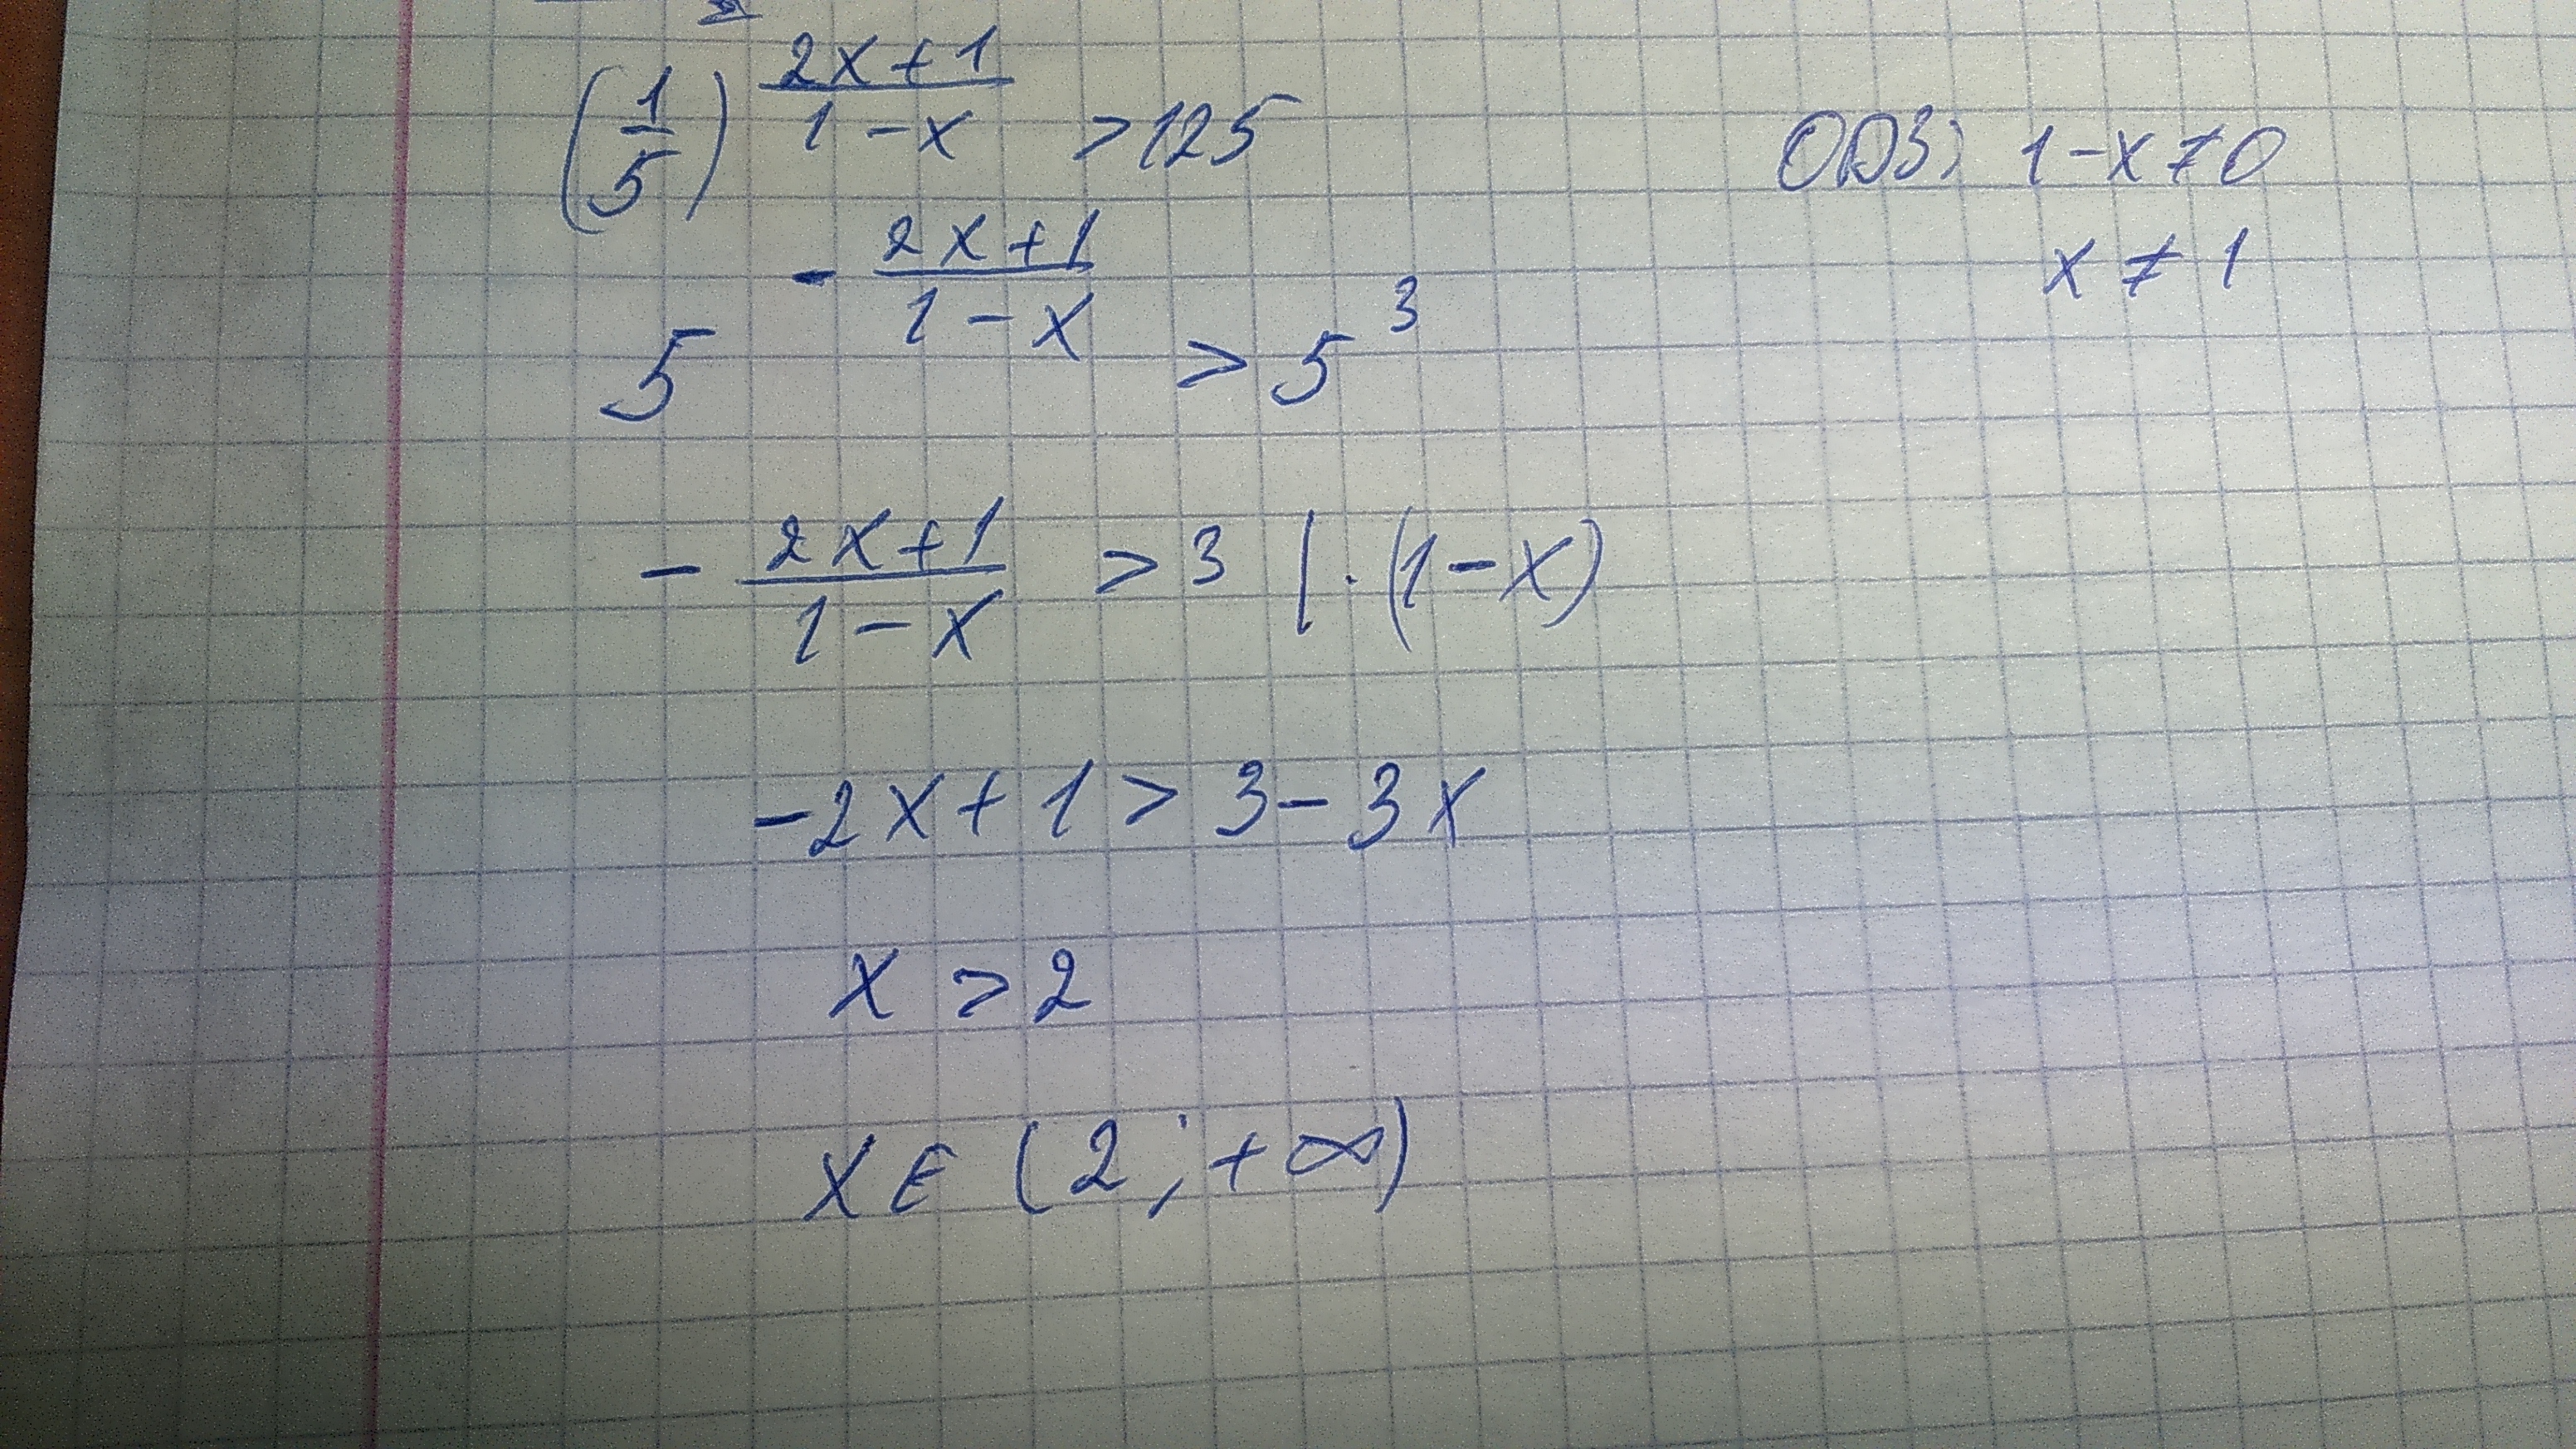 (1/5)^((2x+1)/(1-x)) > 125
ОДЗ: 1-x≠0
x ≠ 1
5^(-(2x+1)/(1-x)) > 5^3
-(2x+1)/(1-x) > 3 | ·(1-x)
-2x+1 > 3-3x
x > 2
x∈(2;+∞)